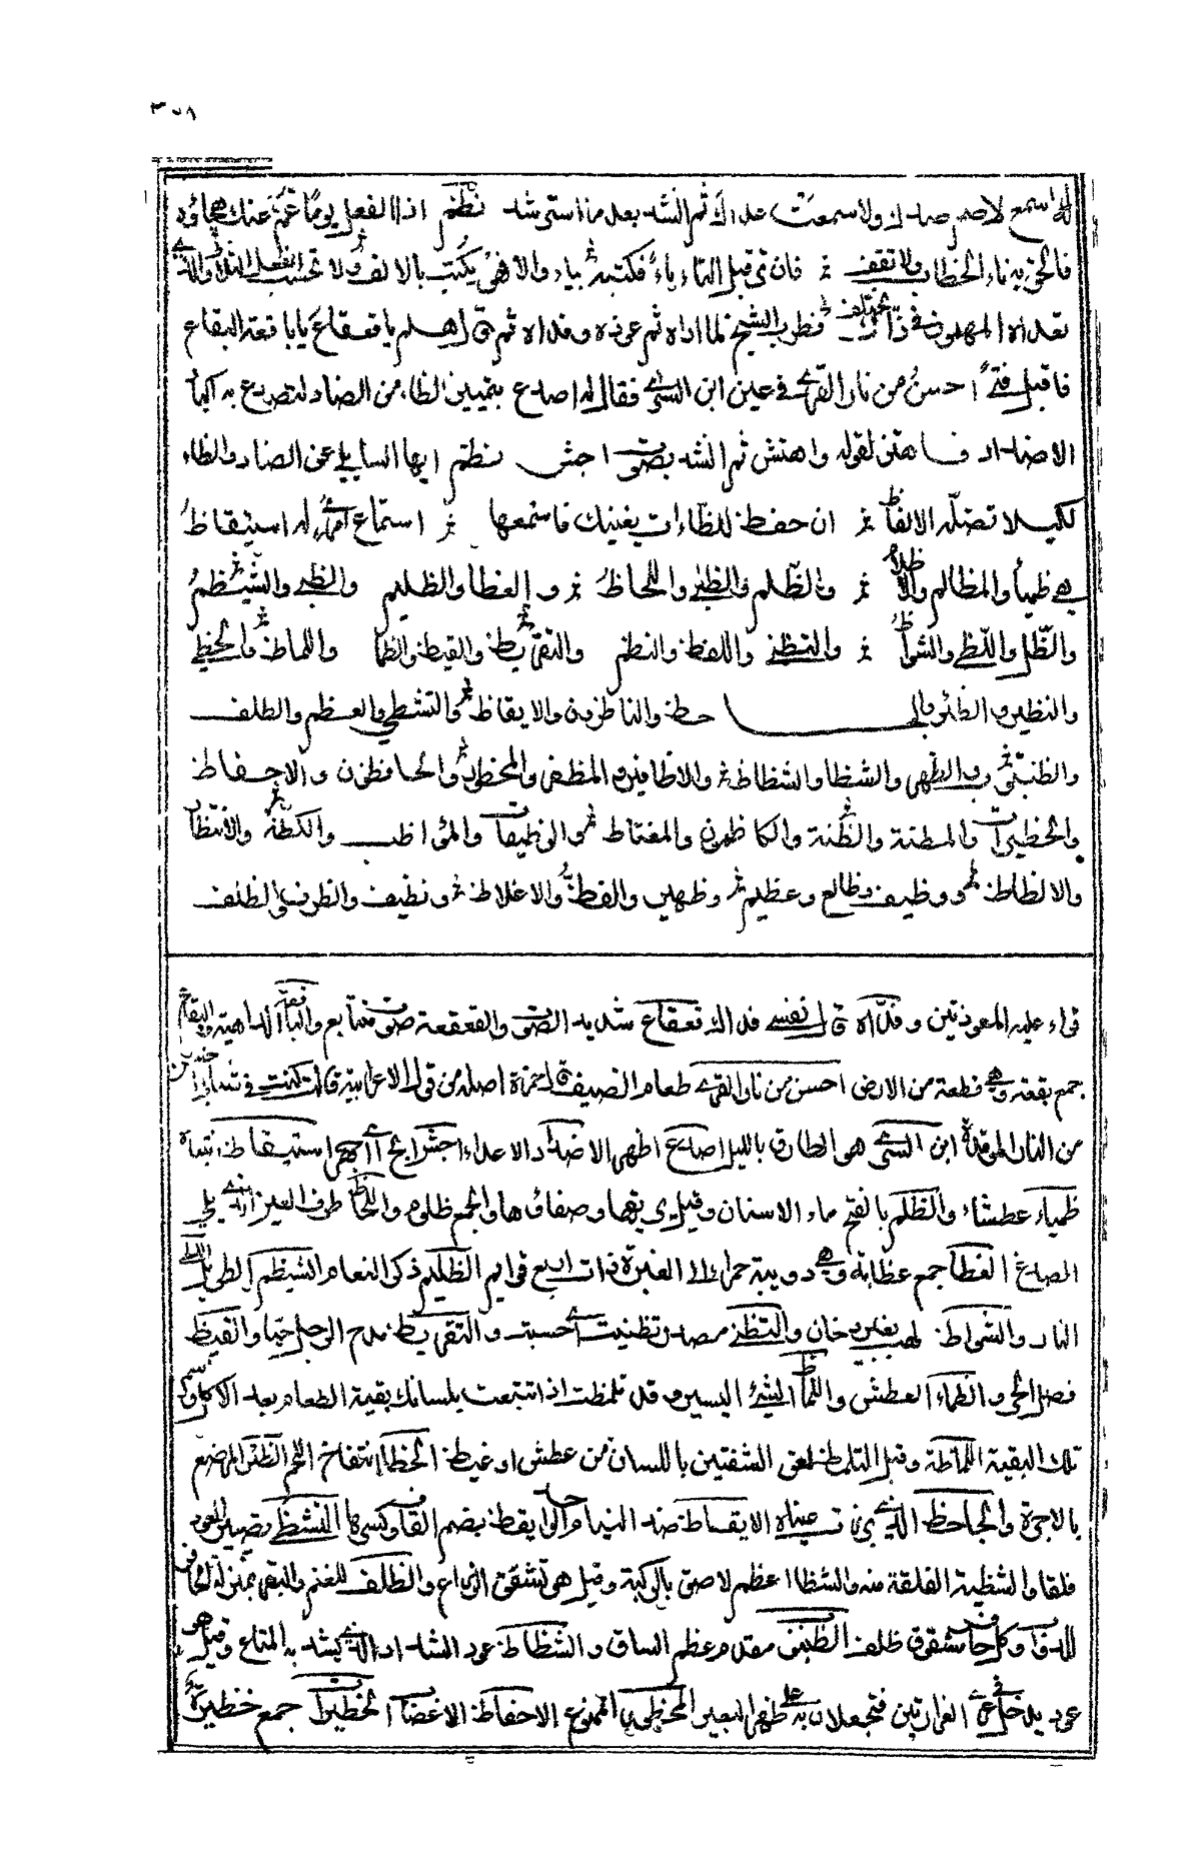 ٣٥٨
له اسمع لا صم صداك ولا سمعت عداك ثم انشد بعد ما استرشد نظم اذا الفعل يوما غم عنك هجاؤه
فالحق به تاء الخطاب ولا تقف فان تر قبل التاء ياء فكتبه بياء والا فهو يكتب بالالف ولا تحسب الفعل الثلاثي والذي
تعداه المهموز في ذاك يختلف فطرب الشيخ لما اداه ثم عوذه وفداه ثم قال هلم يا قعقاع يا باقعة البقاع
فاقبل فتى احسن من نار القرى في عين ابن السرى فقال له اصدع بتمييز الظاء من الضاد لتصدع به اكباد
الاضداد فاهتز لقوله واهتش ثم انشد بصوت اجش نظم ايها السايل عن الضاد والظاء
لكيلا تضله الالفاظ ان حفظ الظاءات يغنيك فاسمعها استماع امرئ له استيقاظ
هي ظمياء والمظالم والاظلام والظلم والظبى واللحاظ و العظا والظليم والظبى والشيظم
والظل واللظى والشواظ والتظنى واللفظ والنظم والتقريظ والقيظ والظما واللماظ والحظى
والنظير والظئر والجاحظ والناظرون والايقاظ والتشظى والعظم والظلف
والظنبوب والظهر والشظا والشظاظ والاظافير والمظفر والمحظور والحافظون والاحفاظ
والحظيرات والمظنة والظنة والكاظمون والمغتاظ والوظيفات والمواظب والكظة والانتظار
والالظاظ ووظيف وظالع وعظيم وظهير والفظ والاغلاظ ونظيف والظرف والظلف
قراء عليه المعوذتين وفداه قال نفسي فداك قعقاع شديد الصوت والقعقعة صوت متتابع والباقعة الداهية والبقاع
جمع بقعة وهي قطعة من الارض احسن من نار القرى طعام الضيف قال حمزة اصله من قول الاعرابية قالت كنت في شبابى احسن
من النار الموقدة ابن السرى هو الطارق بالليل اصدع اظهر الاضداد الاعداء اجش ابح اى اجهر استيقاظ انتباه
ظمياء عطشاء والظلم بالفتح ماء الاسنان وقيل بريقها وصفاؤها والجمع ظلوم واللحاظ طرف العين الذي يلى
الصدغ العظا جمع عظاية وهي دويبة حمراء الى الغبرة ذات اربع قوايم الظليم ذكر النعام الشيظم الطويل اللظى
النار والشواظ لهب بغير دخان والتظنى مصدر تظنيت اى حسبت والتقريظ مدح الرجل حيا والقيظ
فصل الحر والظماء العطش واللماظ الشئ اليسير وقد تلمظت اذا تتبعت بلسانك بقية الطعام بعد الاكل واسم
تلك البقية اللماظة وقيل التلمظ لعق الشفتين باللسان من عطش او غيظ الحظا انتفاخ اللحم الظئر المرضع
بالاجرة والجاحظ الذي برزت عيناه الايقاظ ضد النيام واحد يقظ بضم القاف وكسرها التشظى تصيير العود
فلقا والشظية الفلقة منه والشظا عظم لاصق بالركبة وقيل هو تشقق الذراع والظلف للغنم والبقر بمنزلة الحافر
للدواب وكل حافر مشقوق ظلف الظنبوب مقدم عظم الساق والشظاظ عود الشداد الذي يشد به المتاع وقيل هو
عود يدخل في عرى الغرارتين فتجعلان به على ظهر البعير المحظور الممنوع الاحفاظ الاغضاب الحظيرات جمع حظيرة